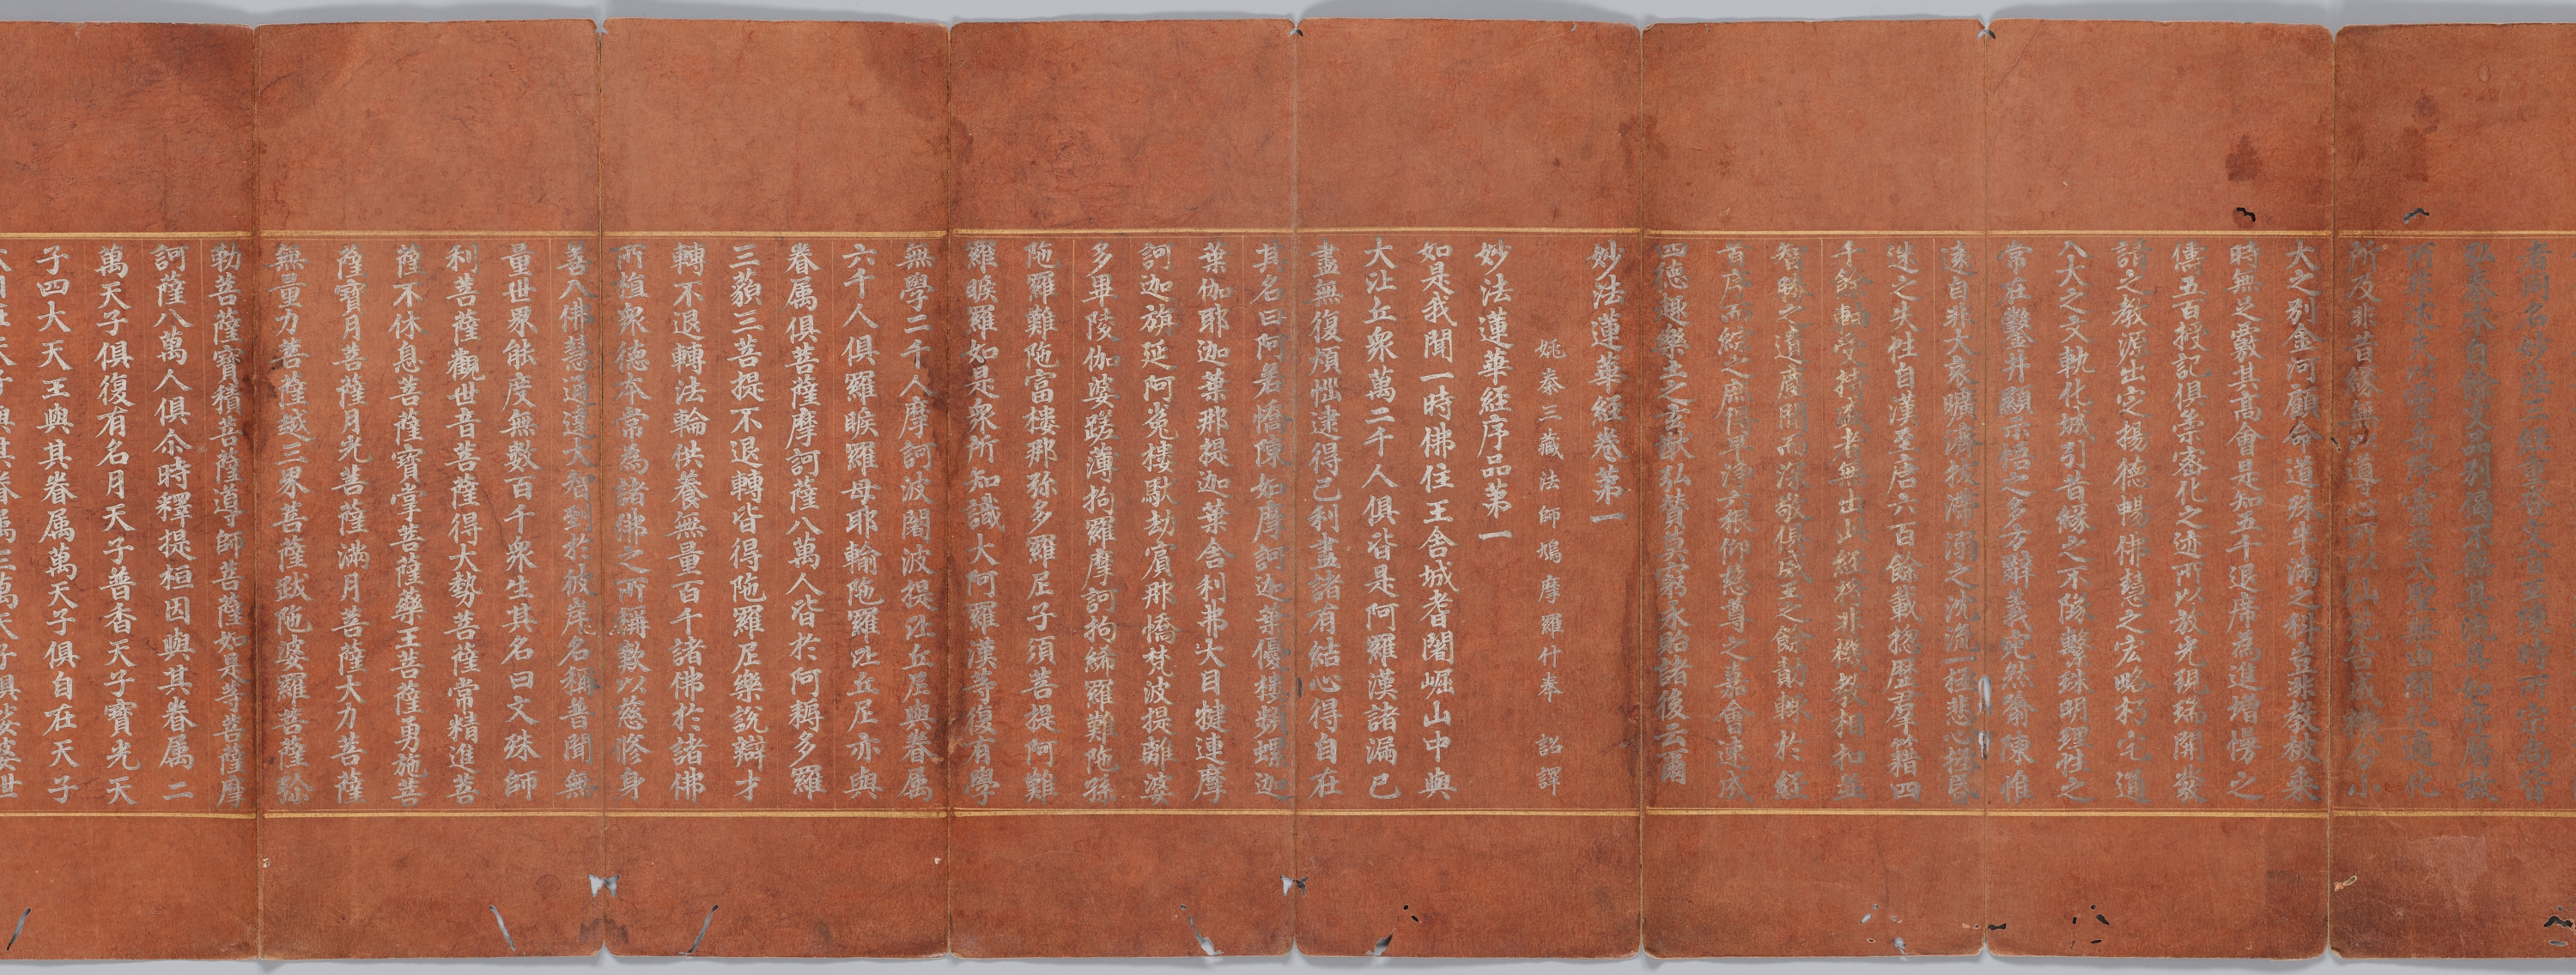 者同名妙法三經重沓文旨互陳時所宗尚皆
弘秦本自餘支品別偈不無其流具如序曆故
所非述夫以靈岳降靈非大聖無由開化適化
所及非昔緣無以導心所以仙苑告成機分小
大之別金河顧命道殊半滿之科豈非教被乘
時無足覈其高會是知五千退席為進增慢之
儔五百授記俱崇密化之迹所以放光現瑞開發
請之教源出定揚德暢佛慧之宏略朽宅通
入大之文軌化城引昔緣之不墜繫珠明理性之
常在鑿井顯示悟之多方辭義宛然喻陳惟
遠自非大哀曠濟拔滯溺之沈流一極悲心拯昏
迷之失性自漢至唐六百餘載揔歷羣籍四
千餘軸受持盛者無出此經將非機教相扣並
智勝之遺塵聞而深敬俱威王之餘勣輒於經
首序而綜之庶得早淨六根仰慈尊之嘉會速成
四德趣樂土之玄猷弘贊莫窮永貽諸後云爾
妙法蓮華經卷第一
姚秦三藏法師鳩摩羅什奉 詔譯
妙法蓮華經序品第一
如是我聞一時佛住王舍城耆闍崛山中與
大比丘衆萬二千人俱皆是阿羅漢諸漏已
盡無復煩惱逮得己利盡諸有結心得自在
其名曰阿若憍陳如摩訶迦葉優樓頻螺迦
葉伽耶迦葉那提迦葉舍利弗大目揵連摩
訶迦旃延阿㝹樓馱劫賓那憍梵波提離婆
多畢陵伽婆蹉薄拘羅摩訶拘絺羅難陁孫
陁羅難陁富樓那弥多羅尼子須菩提阿難
羅睺羅如是衆所知識大阿羅漢等復有學
無學二千人摩訶波闍波提比丘尼與眷属
六千人俱羅睺羅母耶輸陁羅比丘尼亦與
眷属俱菩薩摩訶薩八萬人皆於阿耨多羅
三藐三菩提不退轉皆得陁羅尼樂說辯才
轉不退轉法輪供養無量百千諸佛於諸佛
所植衆德本常為諸佛之所稱歎以慈修身
善入佛慧通達大智到於彼岸名稱普聞無
量世界能度無數百千衆生其名曰文殊師
利菩薩觀世音菩薩得大勢菩薩常精進菩
薩不休息菩薩寶掌菩薩藥王菩薩勇施菩
薩寶月菩薩月光菩薩滿月菩薩大力菩薩
無量力菩薩越三界菩薩跋陁婆羅菩薩弥
勒菩薩寶積菩薩導師菩薩如是等菩薩摩
訶薩八萬人俱尒時釋提桓因與其眷属二
萬天子俱復有名月天子普香天子寶光天
子四大天王與其眷属萬天子俱自在天子
大自在天子與其眷属三萬天子俱娑婆世